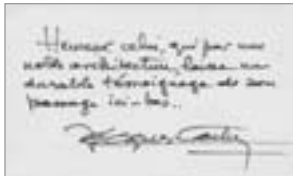 Heureux celui, qui par une
noble architecture, laisse un
durable témoignage de son
passage ici-bas..